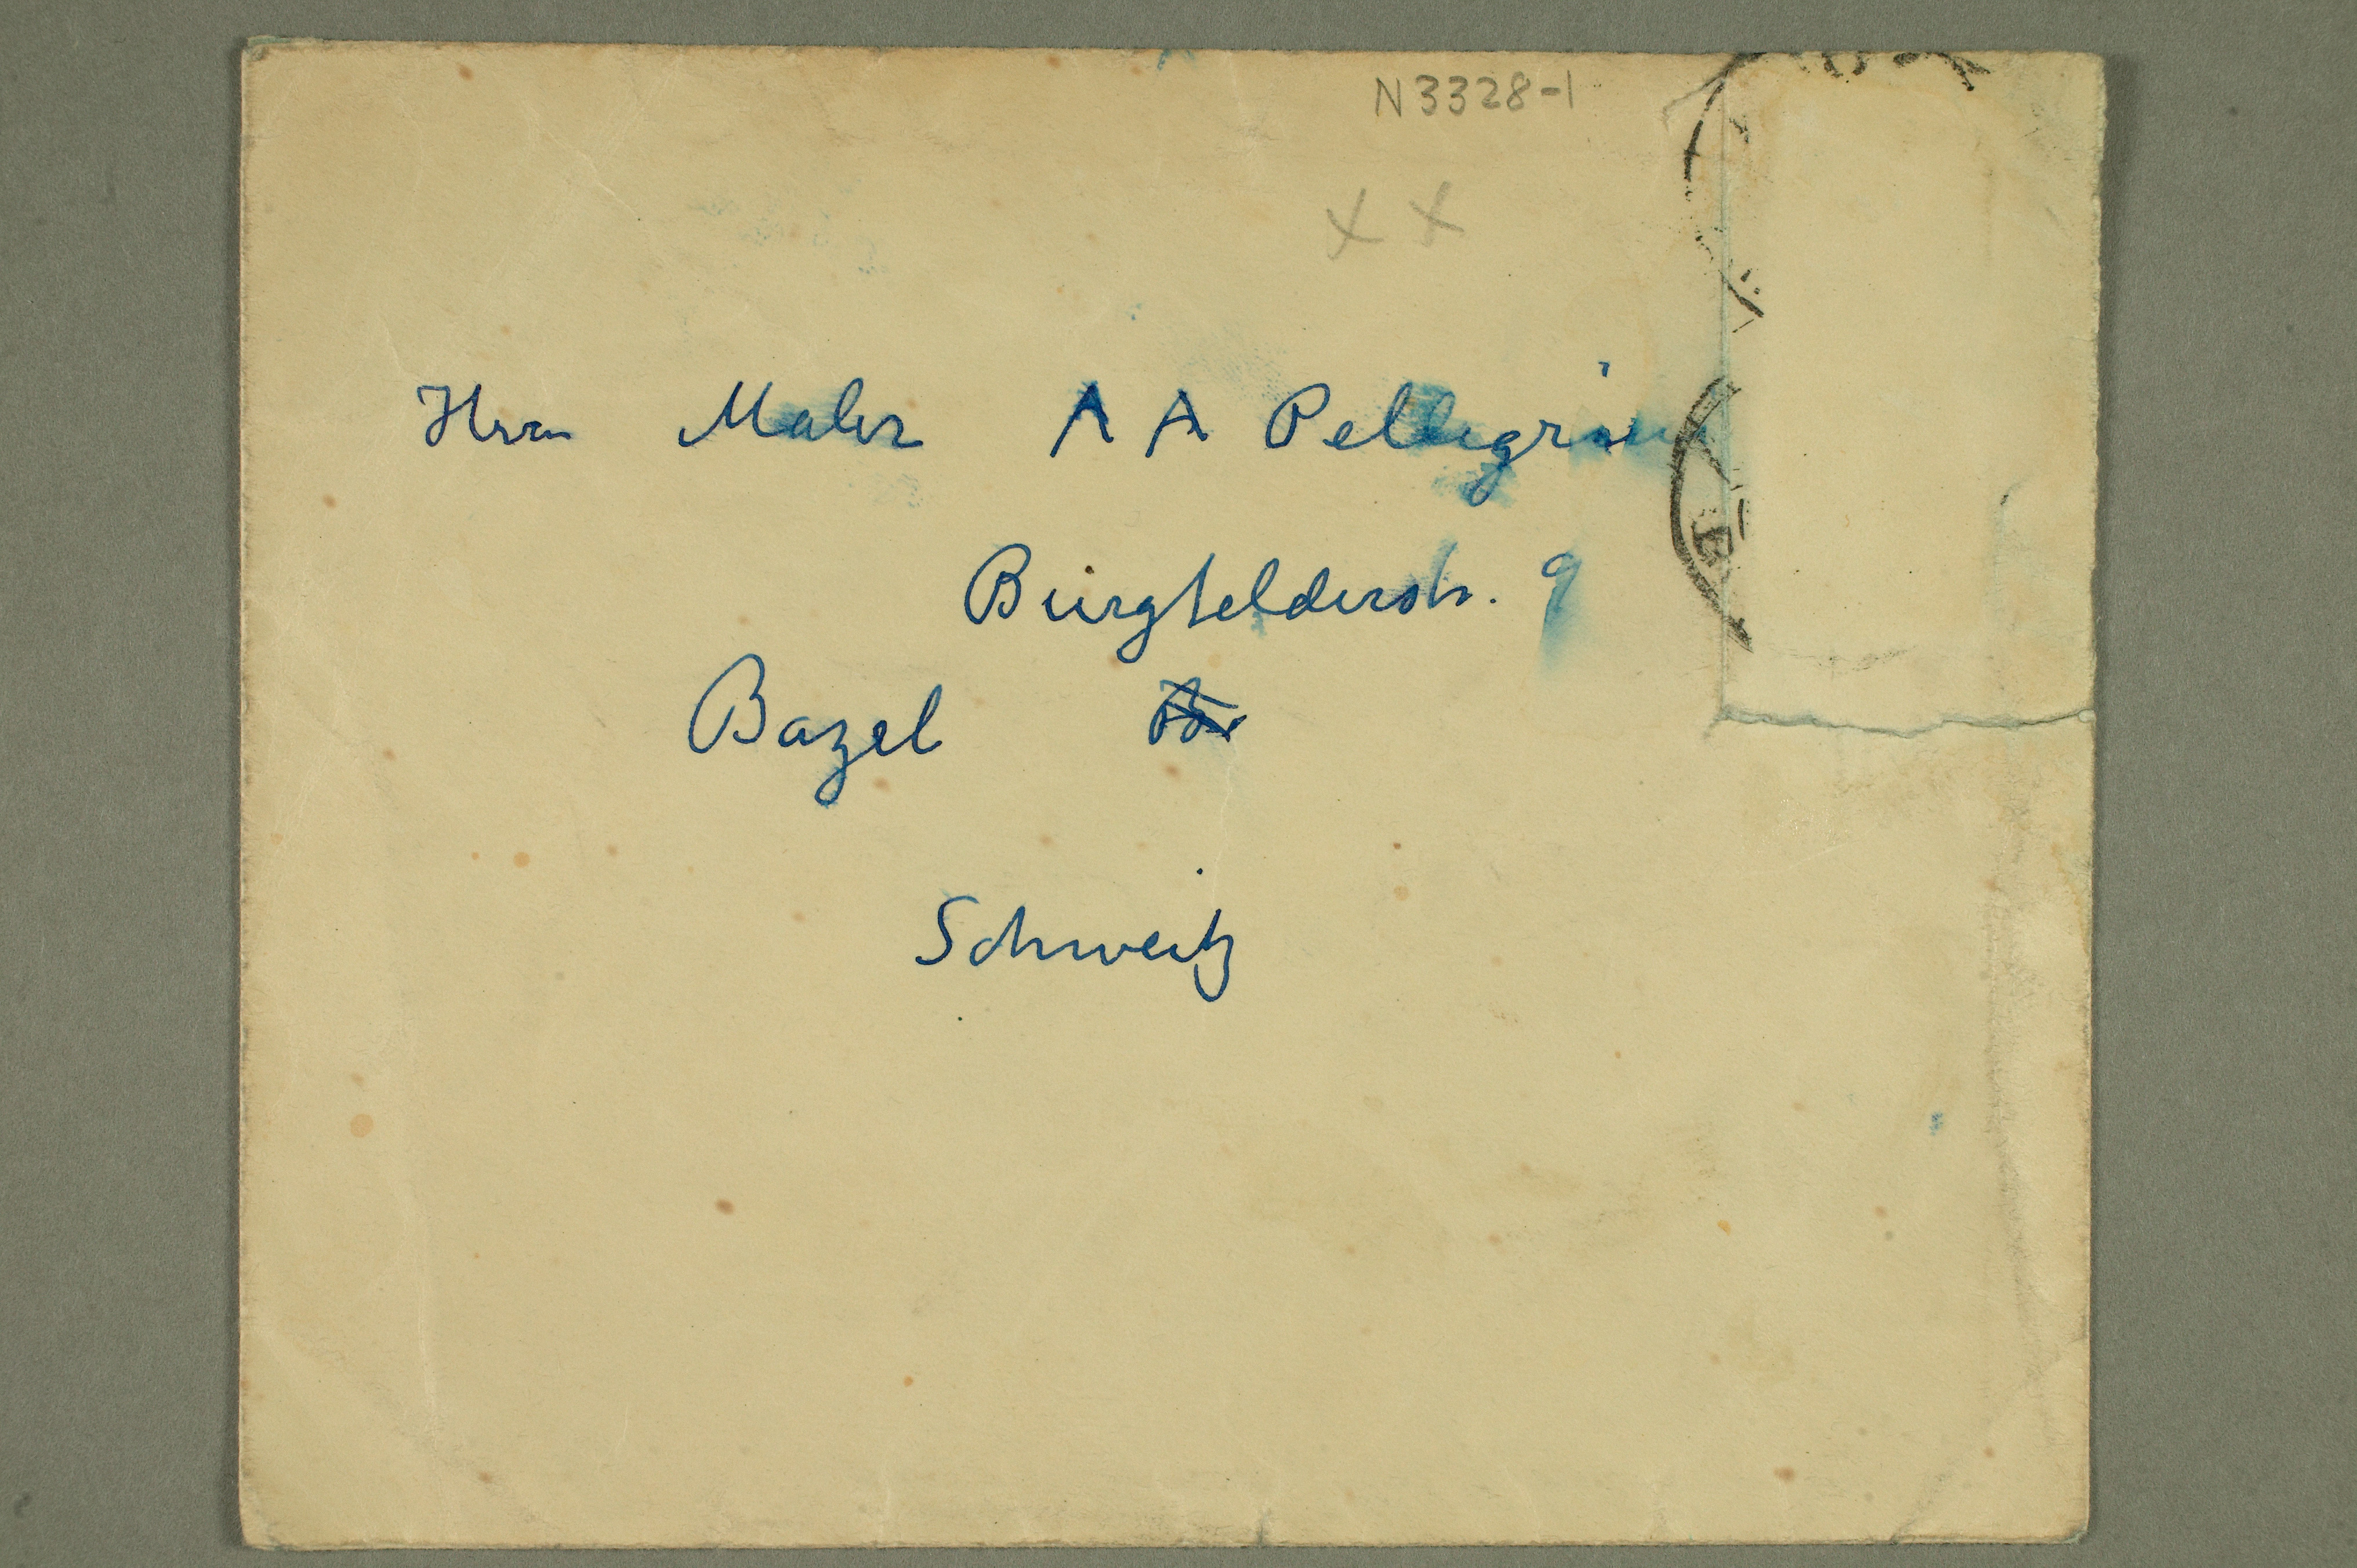 N3328-1
x x
Herrn Maler A A Pellegrini
Burgfelderstr. 9
Bazel
Schweitz